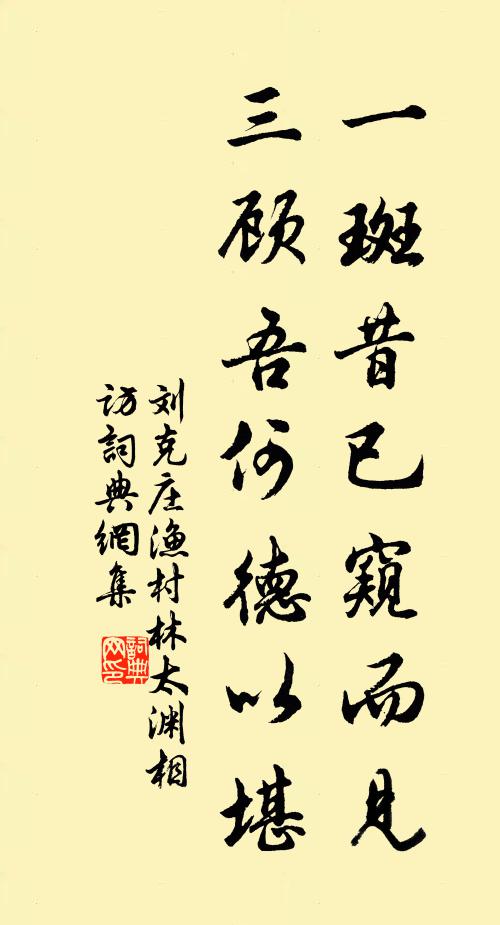 一斑昔已窺而見
三顾吾何德以堪
刘克庄漁村林太渊相
访詞典網集
詞典
网印